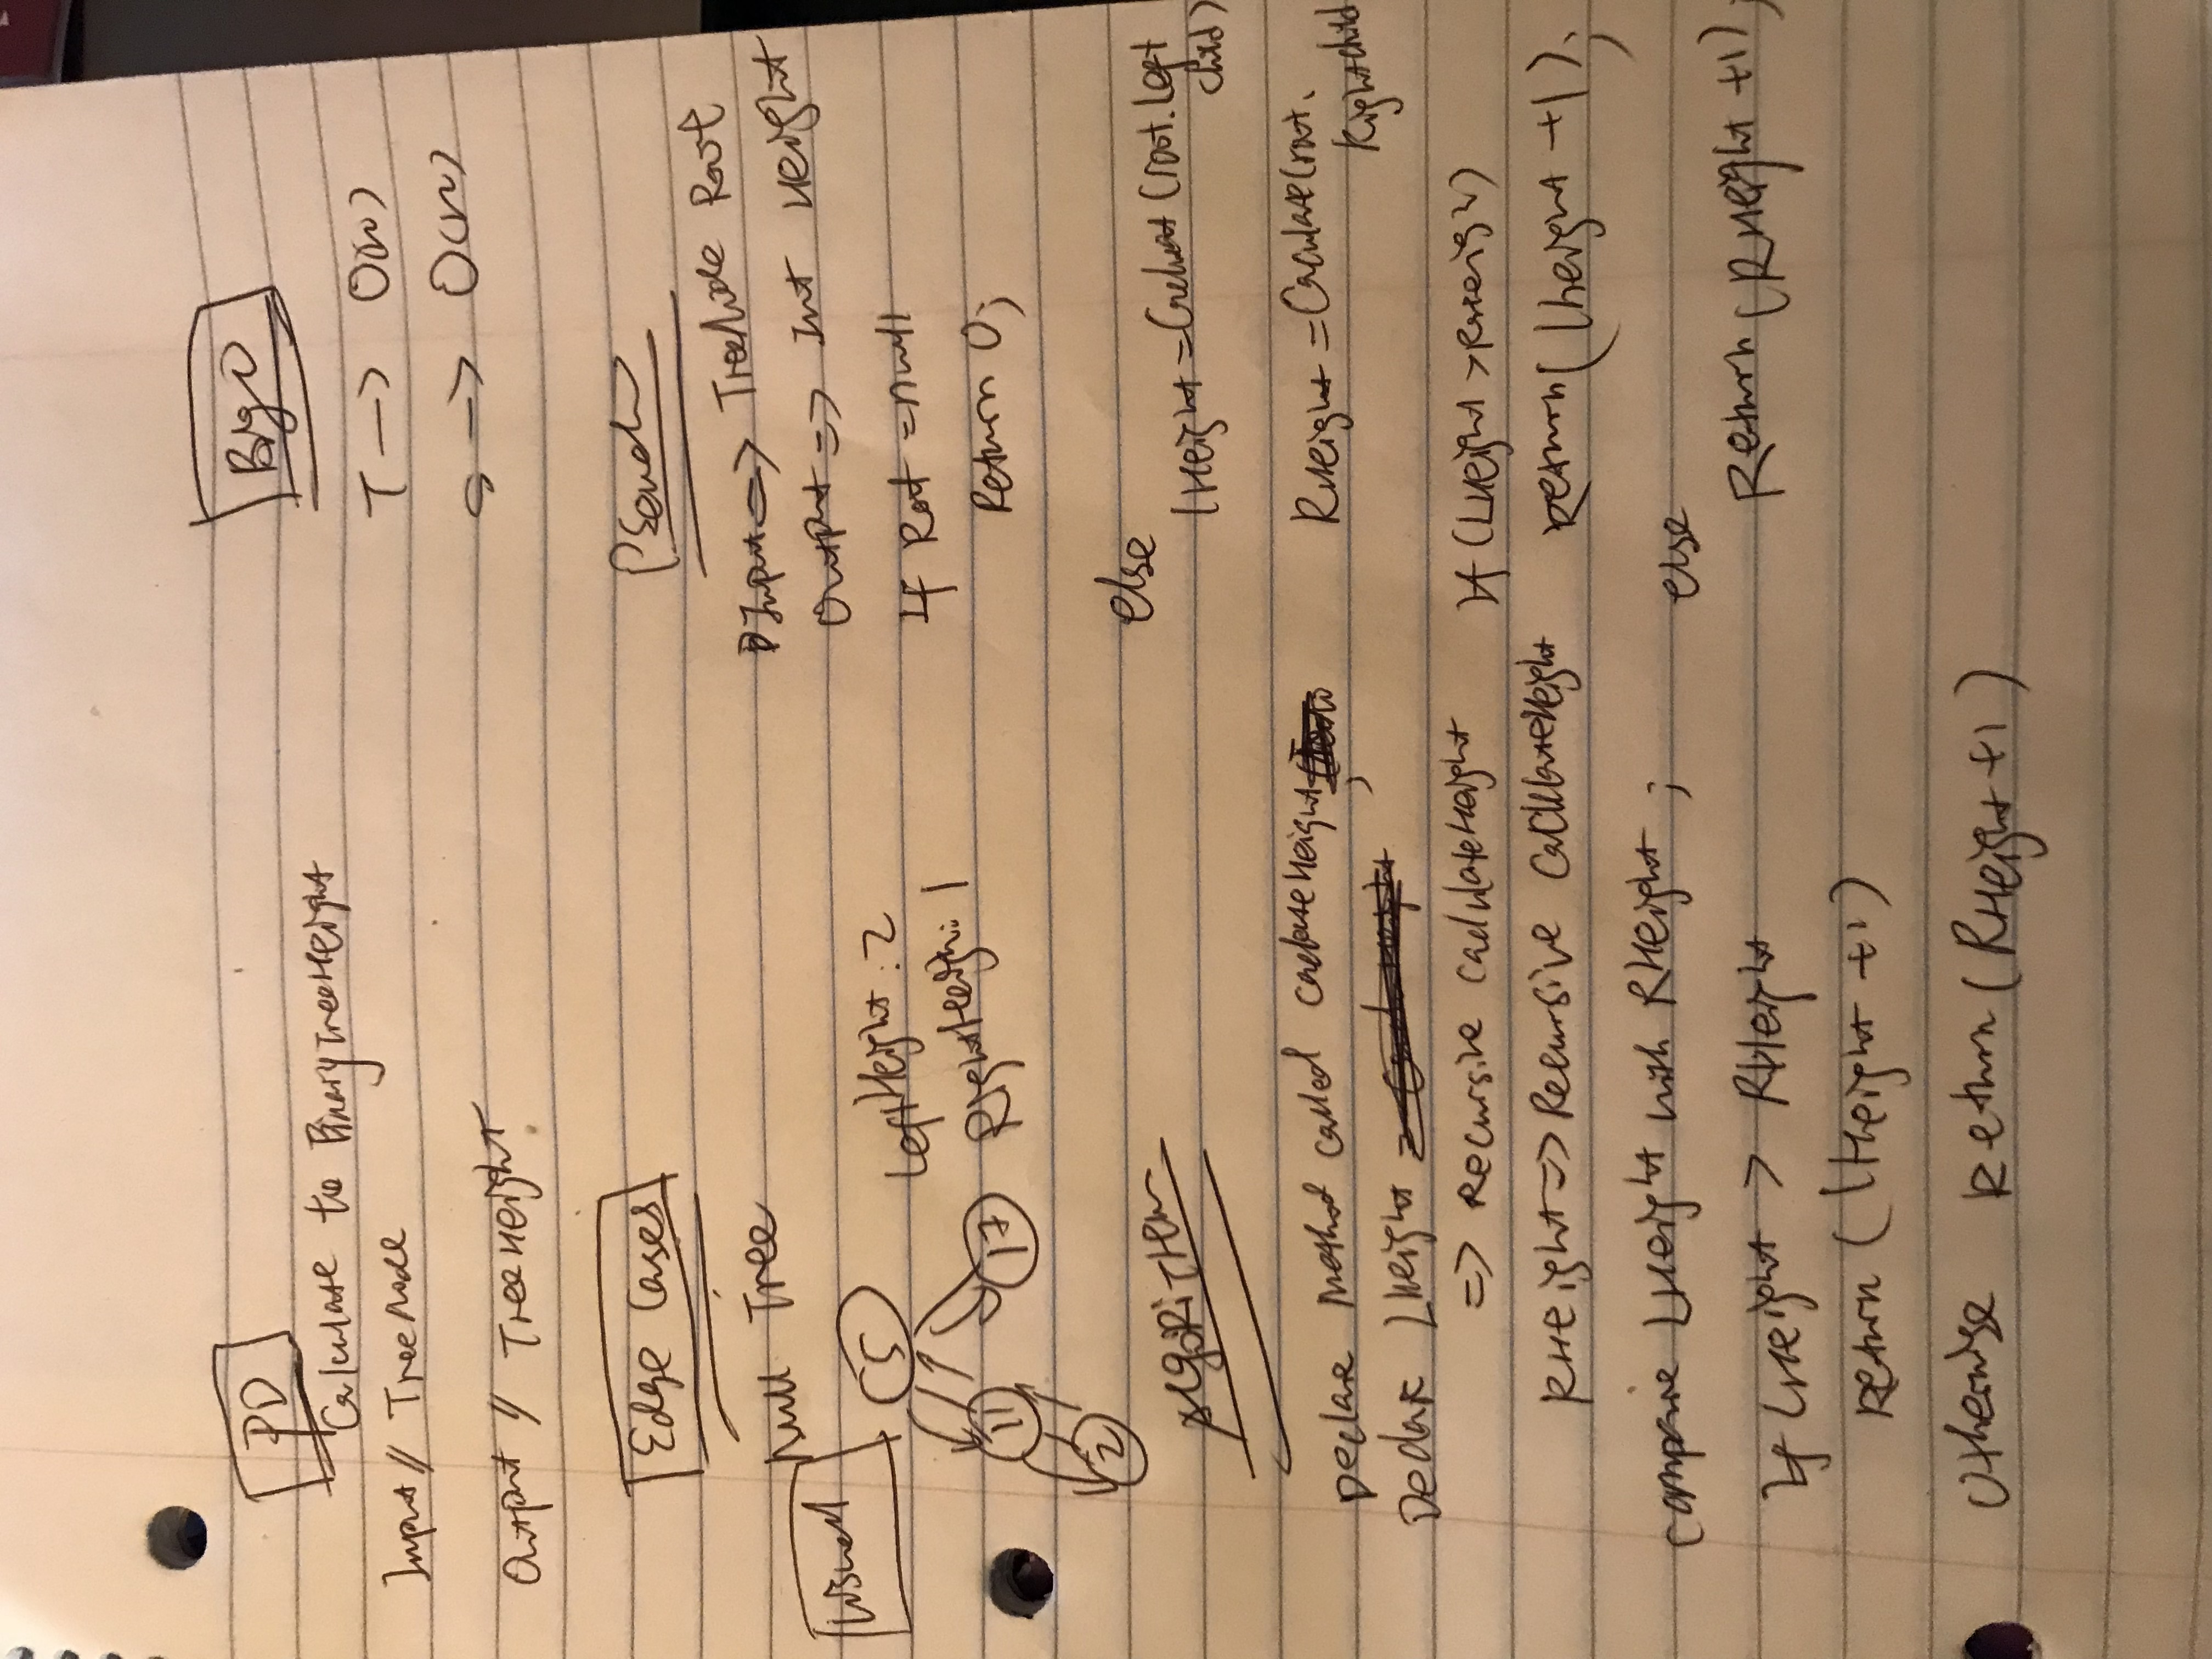 PD
Calculate to BinaryTreeHeight
Input // TreeNode
Output // TreeHeight
Edge Cases
Null Tree
Visual
5
11
17
2
LeftHeight: 2
RightHeigh: 1
Algorithm
Declare Method called
;
Declare LHeight
=> Recursive CaclulateHeight
RHeight => Recursive
compare LHeight with RHeight ;
If LHeight > RHeight
Return ( lHeight +1)
Otherwise Return (RHeight +1)
Big O
T -> O(n)
S -> O(n)
Pseudo
Input => TreeNode Root
Output => Int Height
If Root = null
Return 0;
else
lHeight = (root.Left
child)
RHeight = Caculate(root.
Rightchild
If (LHeight > RHeigh)
Return( lheight +1);
else
Return (RHeight +1);